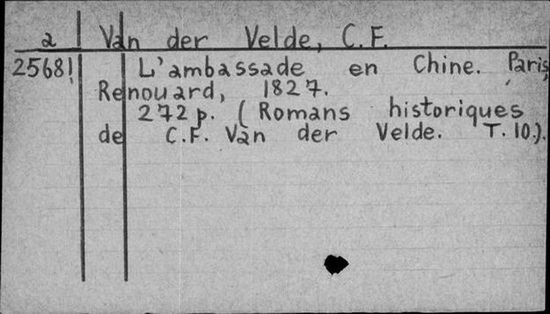 2 Van der Velde, C.F.
25681 L'ambassade en Chine. Paris,
Renouard, 1827.
272 p. (Romans historiques
de C.F. Van der Velde. T. 10.).